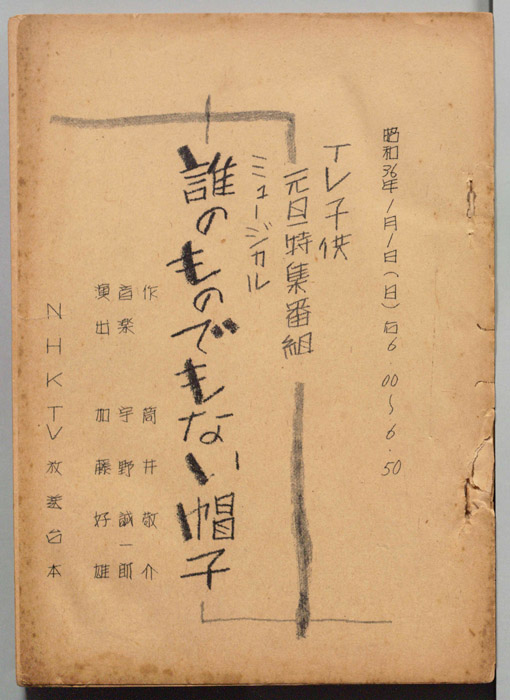 昭和36年1月1日(日)后6.00〜6.50
テレ子供
元旦特集番組
ミュージカル
誰のものでもない帽子
作 筒井敬介
音楽 宇野誠一郎
演出 加藤好雄
NHKTV放送台本